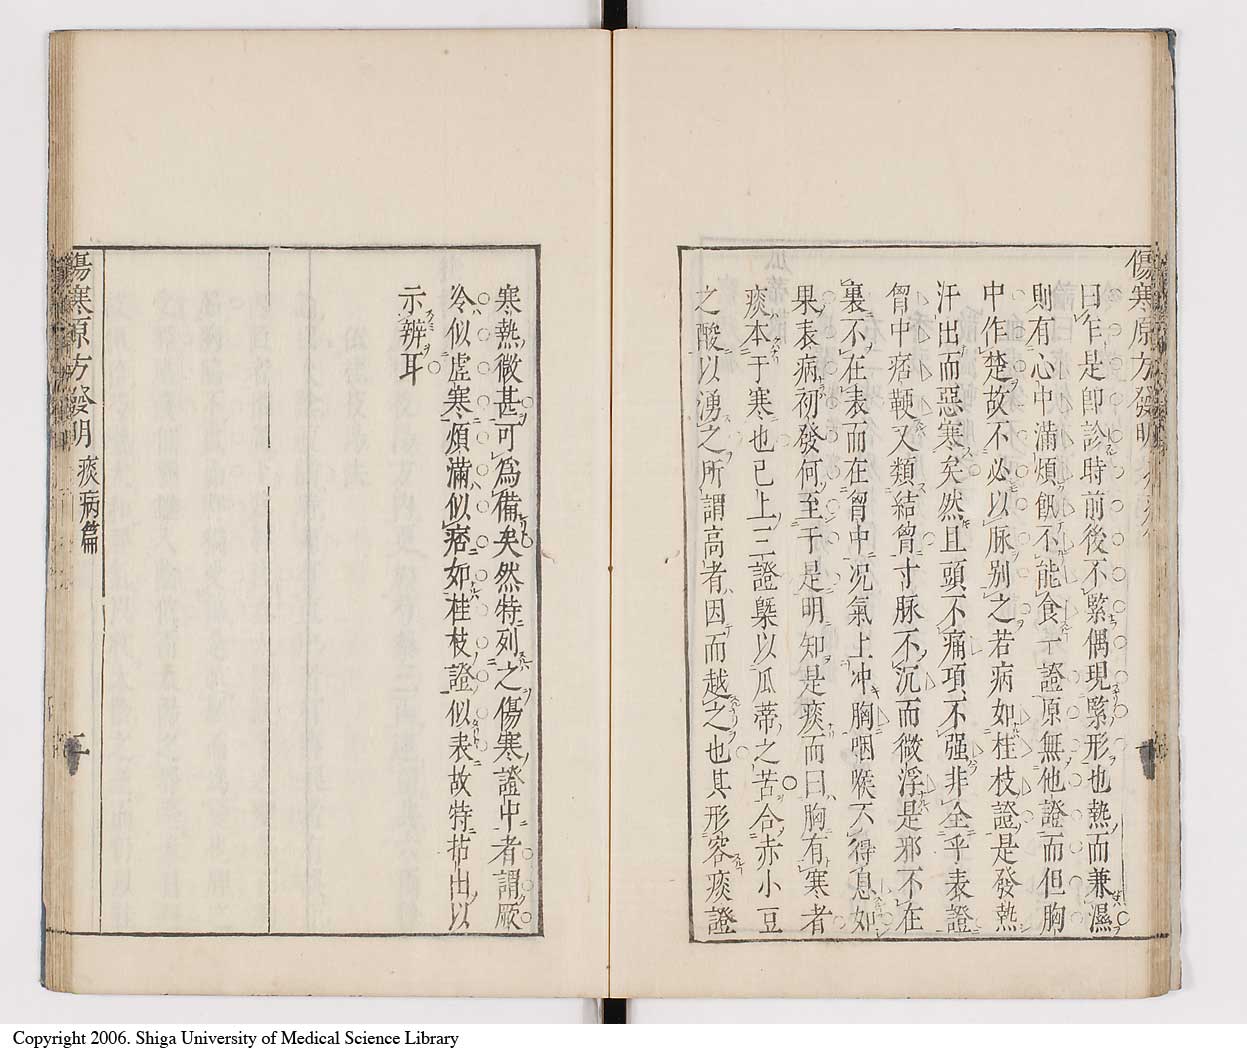 傷寒原方發明
曰乍是卽診時前後不緊偶現緊形也熱而兼濕
則有心中滿煩飢不能食一證原無他證而但胸
中作楚故不必以脉別之若病如桂枝證是發熱
汗出而惡寒矣然且頭不痛項不强非全乎表證
胷中痞鞕又類結胷寸脉不沉而微浮是邪不在
裏不在表而在胷中況氣上冲胸咽喉不得息如
果表病初發何至于是明知是痰而曰胸有寒者
痰本于寒也已上三證槩以瓜蒂之苦合赤小豆
之酸以湧之所謂高者因而越之也其形容痰證
寒熱微甚可爲備矣然特列之傷寒證中者謂厥
冷似虛寒煩滿似痞如桂枝證似表故特拈出以
示辨耳
傷寒原方發明 痰病篇 二
Copyright 2006. Shiga University of Medical Science Library